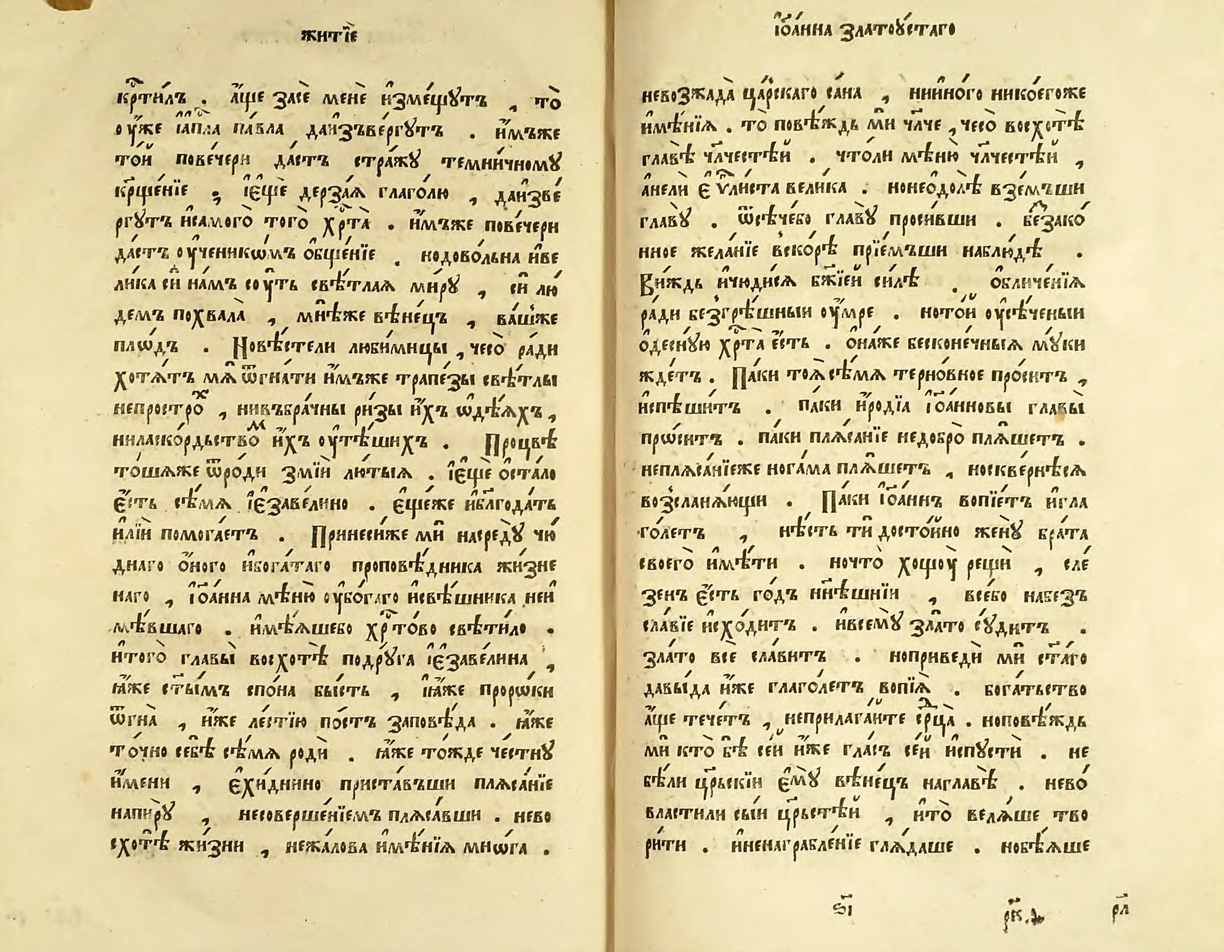 житїе
кр҃тилъ . а҆́ще засѐ менѐ и҆змещꙋтъ , то̀
ѹ҆́же і҆ап҃ла па́вла даи҆зъве́ргутъ . и҆́мъже
то́й повече́ри да́стъ стра́жꙋ темни́чномꙋ
кр҃ще́нїе ; і҆є҆щѐ дерза́ѧ глаго́лю , даи҆зве́
ргутъ и҆самого̀ того̀ хр҃та̀ . и҆́мъже пове́чери
да́стъ ѹ҆ченикѡ́мъ общ҃е́нїе . нодово́льна и҆ве
ли́ка сѝ на́мъ сѹ́ть свѣ́тлаѧ ми́рꙋ , сѝ лю́
демъ похвала̀ , мнѣ́же вѣне́цъ , ва́шже
пло́дъ . Повѣ́стели люби́мицы , чесо̀ ра́ди
хотѧ́тъ мѧ̀ ѿгна́ти и҆́мъже трапе́зы свѣ́тлы
непростро́х , нивъбра́чны ри́зы и҆́хъ ѡ҆дѣ́ѧхъ ,
ниласкордьство́м и҆́хъ ѹ҆тѣ́шихъ . Процвѣ
то́шѧже ѿро́ди змі́и лю́тыѧ . і҆є҆щѐ оста́ло
є҆́сть сѣ́мѧ і҆є҆заве́лино . є҆ще́же и҆благода́ть
и҆лїи́ помога́етъ . Принеси́же мѝ насредꙋ̀ чю́
днаго о҆́ного и҆бога́таго проповѣ́дника жи́зне
наго , і҆ѡа́нна мѣню̀ ѹ҆бо́гаго и҆свѣ́щника неи
мѣ́вшаго . и҆мѣ́ѧшебо хр҃то́во свѣти́ло .
и҆того̀ главы̀ восхотѣ̀ подрꙋ́га і҆є҆заве́лина ,
ꙗ҆́же ст҃ы́мъ спо́на бы́сть , і҆ꙗ҆́же проро́ки
ѿгна̀ , и҆́же ле́стїю по́стъ заповѣ́да . ꙗ҆́же
то́чно себѣ̀ сѣ́мѧ родѝ . ꙗ҆́же то́жде че́стнꙋ
и҆́мени , є҆хи́днино приста́въши плѧса́нїе
напи́рꙋ , несоверше́нїемъ плѧса́вши . нево
схотѣ̀ жи́зни , нежа́лова и҆мѣ́нїѧ мно́га .
і҆ѡа́нна златоꙋ́стаго
невозжада̀ ца́рскаго са́на , нии҆но́го нико́егоже
и҆мѣ́нїѧ . то̀ повѣ́ждь мѝ чл҃че , чесо̀ восхотѣ̀
главѣ̀ чл҃честѣ́й . что́ли мѣню̀ чл҃честѣ́й ,
а҆́нгели є҆ѵⷢ҇листа вели́ка . ноне́одолѣ̀ взе́мъши
главꙋ̀ . ѿсѣ́чебо главꙋ̀ проси́вши . беззако́
нное жела́нїе вско́рѣ прїе́мъши наблю́дѣ .
Ви́ждь и҆чюди́сѧ бж҃їей си́лѣ . обличе́нїѧ
ра́ди безгрѣ́шныи ѹ҆́мре . ното́й ѹ҆сѣ́ченыи
одеснꙋ́ю хр҃та̀ є҆́сть . о҆на́же бесконе́чныѧ мꙋ́ки
жде́тъ . Па́ки тоѧ̀ сѣ́мѧ терно́вное про́ситъ ,
и҆спѣши́тъ . па́ки и҆родїа̀ і҆ѡа́нновы главы̀
про́ситъ . па́ки плѧса́нїе недобро̀ плѧ́шетъ .
неплѧса́нїеже нога́ма плѧ́шетъ , носкве́рнѣесѧ
возсланѧ́ющи . Па́ки і҆ѡа́ннъ вопїе́тъ и҆гла
го́летъ , нѣ́сть тѝ досто́йно женꙋ̀ бра́та
своего̀ и҆мѣ́ти . ночто̀ хощꙋ̀ рещѝ , сле́
зенъ є҆́сть го́дъ нн҃ѣшнїи , всѐбо набезъ
сла́вїе и҆схо́дит . и҆всемꙋ̀ зла́то сꙋ́дитъ .
зла́то всѐ сла́витъ . ноприведѝ мѝ ст҃а́го
давы́да и҆́же глаго́летъ вопїѧ̀ . бога́тьство
а҆́ще тече́тъ , неприлага́ите ср҃ца . ноповѣ́ждь
мѝ кто̀ бѣ̀ се́й и҆́же гла́съ се́й и҆спустѝ . не
бѣ́ли цр҃ьскїи є҆мꙋ̀ вѣне́цъ наглавѣ̀ . нево́
власти́ли сы́и цр҃ьстѣ́й , и҆то̀ велѧ́ше тво
ри́ти . и҆ненаграбле́нїе глѧ́даше . нобѣ́ѧше
ѕ҃і
рк҃
рл҃